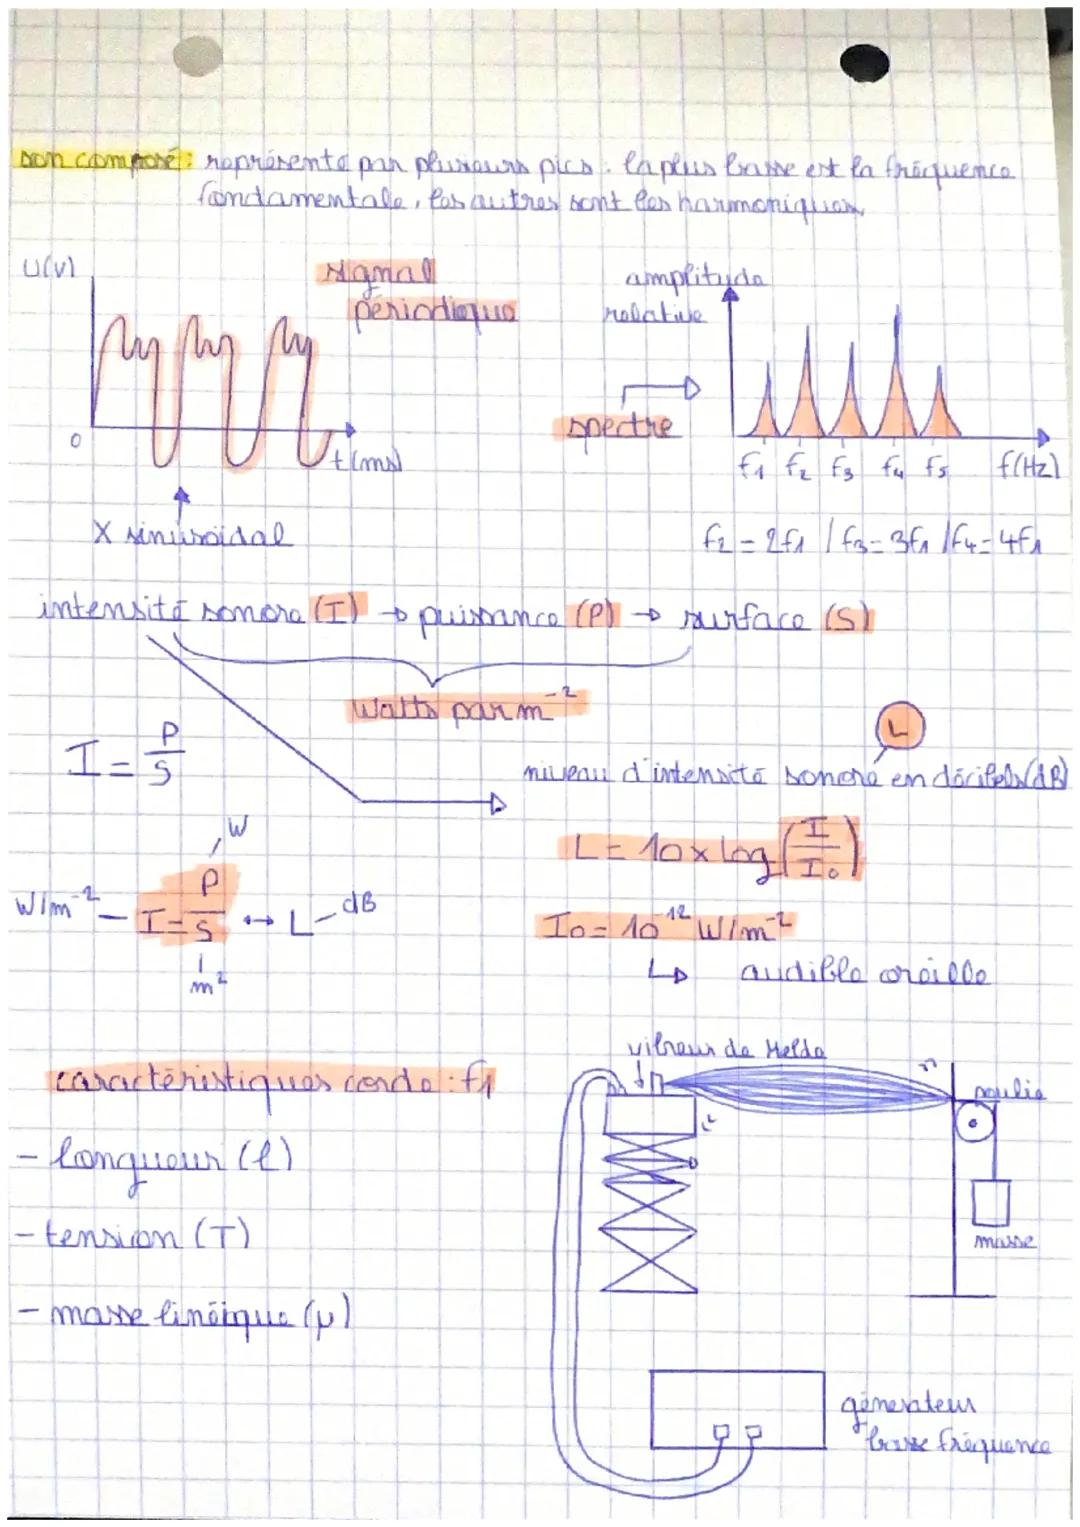 son composé : représenté par plusieurs pics : la plus basse est la fréquence
fondamentale, les autres sont les harmoniques
U(V)
signal
périodique
0
t(ms)
X sinusoïdal
amplitude
relative
spectre
f1 f2 f3 f4 f5 f(Hz)
f2 = 2f1 / f3 = 3f1 / f4 = 4f1
intensité sonore (I) → puissance (P) → surface (S)
Watts par m⁻²
I = P/S
L
niveau d'intensité sonore en décibels (dB)
L = 10 x log (I/I₀)
W
W/m⁻² — I = P/S ↔ L — dB
m²
I₀ = 10⁻¹² W/m⁻²
↳ audible oreille
caractéristiques corde : f1
- longueur (l)
- tension (T)
- masse linéique (μ)
vibreur de Melde
poulie
masse
générateur
basse fréquence